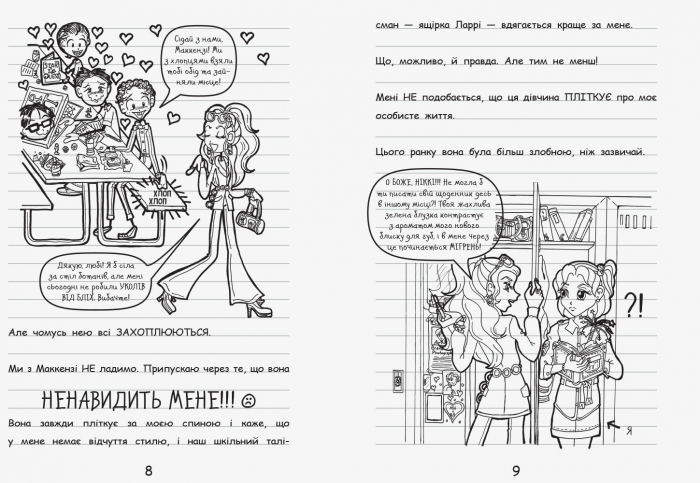 Сідай з нами,
Маккензі! Ми
з хлопцями взяли
тобі обід та зай-
няли місце!
ХЛОП
ХЛОП
Дякую, любі! Я б сіла
за стіл ботанів, але мені
сьогодні не робили УКОЛІВ
ВІД БЛІХ. Вибачте!
Але чомусь нею всі ЗАХОПЛЮЮТЬСЯ.
Ми з Маккензі НЕ ладимо. Припускаю через те, що вона
НЕНАВИДИТЬ МЕНЕ!!! ☹
Вона завжди пліткує за моєю спиною і каже, що
у мене немає відчуття стилю, і наш шкільний талі-
8
сман — ящірка Ларрі — вдягається краще за мене.
Що, можливо, й правда. Але тим не менш!
Мені НЕ подобається, що ця дівчина ПЛІТКУЄ про моє
особисте життя.
Цього ранку вона була більш злобною, ніж зазвичай.
О БОЖЕ, НІККІ!!! Не могла б
ти писати свій щоденник десь
в іншому місці?! Твоя жахлива
зелена блузка контрастує
з ароматом мого нового
блиску для губ, і в мене через
це починається МІГРЕНЬ!
?!
Я
9